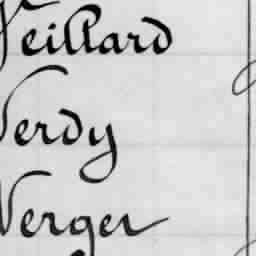 Veillard
Verdy
Verger